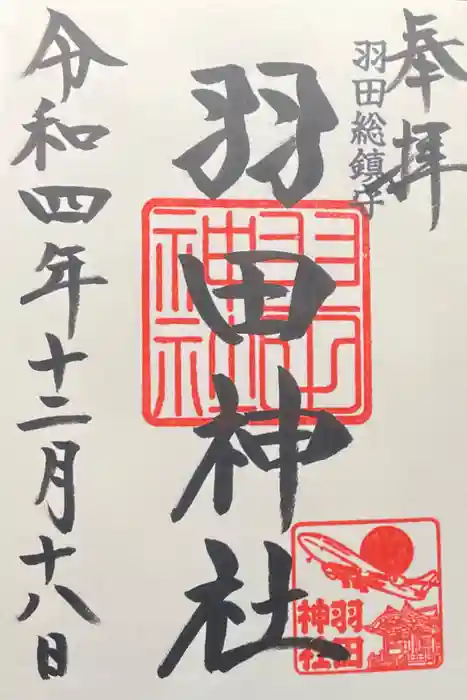 奉拝
羽田総鎮守
羽田神社
羽田神社
羽田
神社
令和四年十二月十八日